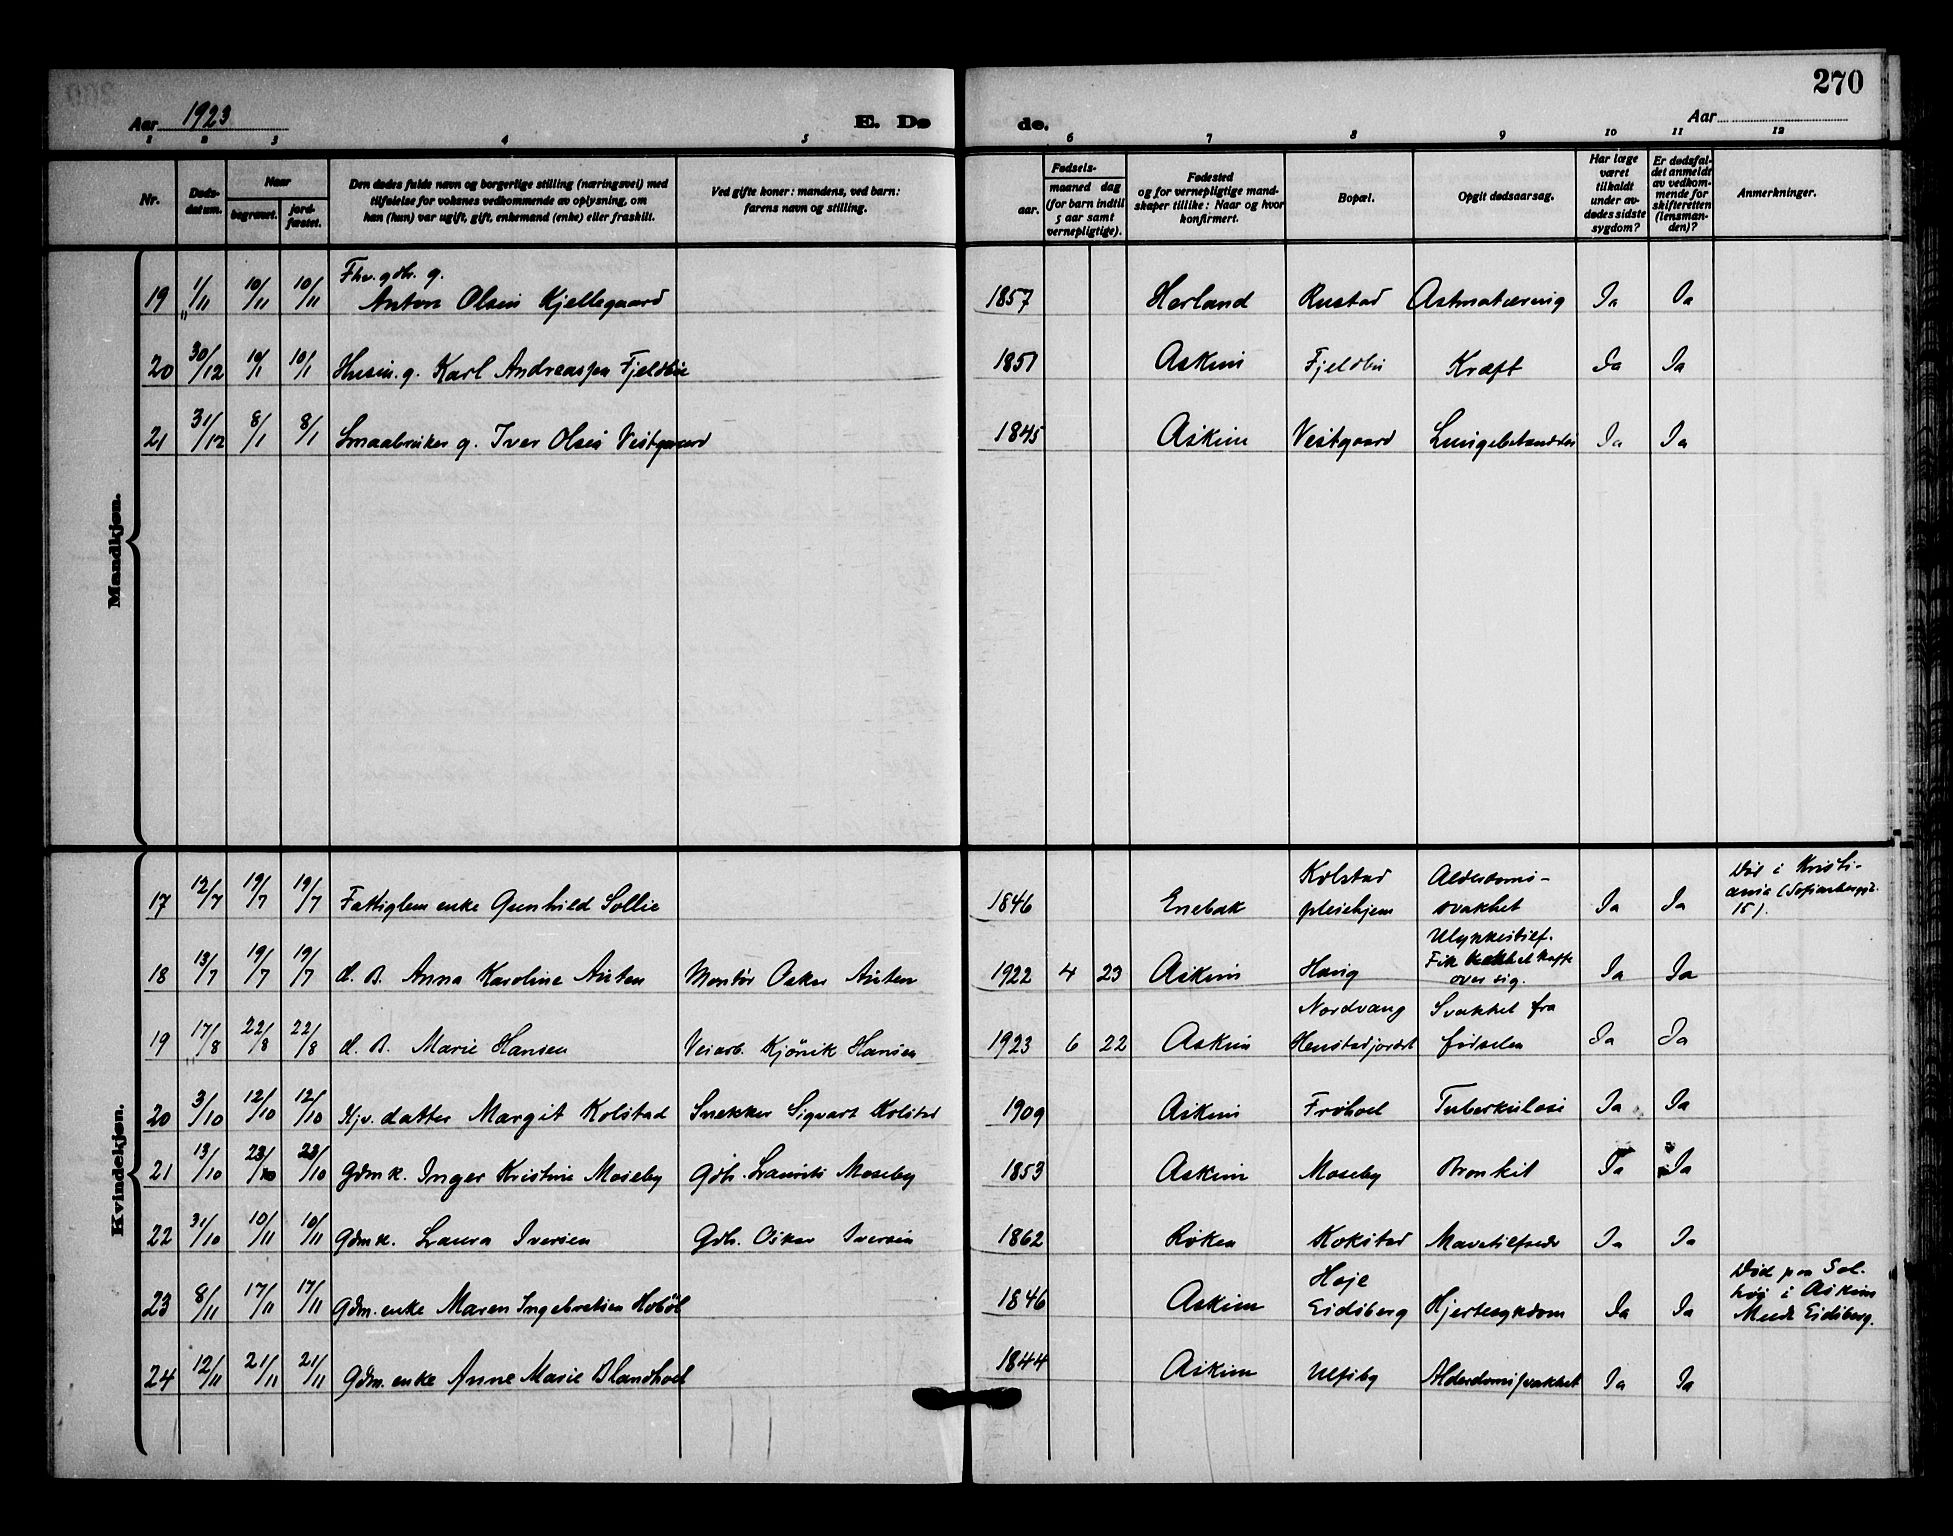 270
Aar 1923 E. Dø
de. Aar
1 2 3 4 5 6 7 8 9 10 11 12
Nr. Døds-datum. Naar begravet. jord-fæstet. Den dødes fulde navn og borgerlige stilling (næringsvei) med tilføielse for voksnes vedkommende av oplysning, om han (hun) var ugift, gift, enkemand (enke) eller fraskilt. Ved gifte koner: mandens, ved barn: farens navn og stilling. Fødsels- aar. maaned dag (for barn indtil 5 aar samt vernepligtige). Fødested og for vernepligtige mand-skaper tillike: Naar og hvor konfirmert. Bopæl. Opgit dødsaarsag. Har læge været tilkaldt under av-dødes sidste sygdom? Er dødsfal-det anmeldt av vedkom-mende for skifteretten (lensman-den)? Anmerkninger.
Mandkjøn.
19 1/11 10/11 10/11 Fhv. gdb. g. Anton Olsen Kjellegaard 1857 Herland Rustad Astmatæring Ja Ja
20 30/12 10/1 10/1 Husm. g. Karl Andreassen Fjeldbu 1851 Askim Fjeldbu Kræft Ja Ja
21 31/12 8/1 8/1 Smaabruker g. Iver Olsen Vestgaard 1845 Askim Vestgaard Lungebetændelse Ja Ja
Kvindekjøn.
17 12/7 19/7 19/7 Fattiglem enke Gunhild Sollie 1846 Enebak Kolstad pleiehjem Alderdoms-svakhet Ja Ja Død i Kristi-ania (Sofienbergg. 15).
18 13/7 19/7 19/7 d. B. Anna Karoline Auten Montør Oskar Auten 1922 4 23 Askim Haug Ulykkestilf. Fik kokhet kaffe over sig. Ja Ja
19 17/8 22/8 22/8 d. B. Marie Hansen Veiarb. Kjönik Hansen 1923 6 22 Askim Nordvang Henstadjordet Svakhet fra fødselen Ja Ja
20 3/10 12/10 12/10 Hjv. datter Margit Kolstad Snekker Sigvart Kolstad 1909 Askim Frøhoel Tuberkulose Ja Ja
21 13/10 23/10 23/10 Gdmk. Inger Kristine Moseby Gdb. Laurits Moseby 1853 Askim Moseby Bronkit Ja Ja
22 31/10 10/11 10/11 Gdmk. Laura Iversen Gdb. Oskar Iversen 1862 Røken Kokstad Mavetilfælde Ja Ja
23 8/11 17/11 17/11 Gdm. enke Maren Ingebretsen Hobøl 1846 Askim Høje Eidsberg Hjertesykdom Ja Ja Død paa Sol-høg i Askim Meldt Eidsberg.
24 12/11 21/11 21/11 Gdm. enke Anne Marie Blandhoel 1844 Askim Ulfsby Alderdomssvakhet Ja Ja